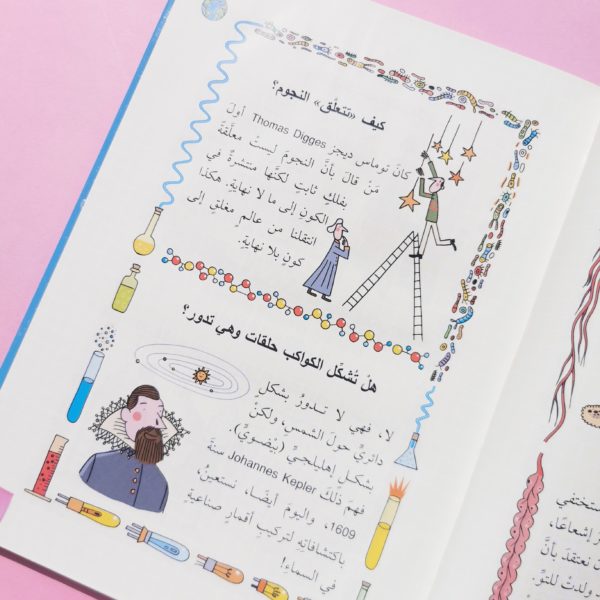 كيف «تتعلّق» النجوم؟
كانَ توماس ديجز Thomas Digges أولَ
مَن قالَ بأنَّ النجومَ ليستْ معلَّقةً
بفلكٍ ثابتٍ لكنَّها منتشرةٌ في
الكونِ إلى ما لا نهايةٍ. هكذا
انتقلنا من عالمٍ مغلقٍ إلى
كونٍ بلا نهايةٍ.
هلْ تُشكّل الكواكب حلقات وهي تدور؟
لا، فهي لا تـدورُ بشكلٍ
دائريّ حولَ الشمسِ، ولكنْ
بشكـلٍ إهليلجـيّ (بَيْضويّ).
فهمَ ذلكَ Johannes Kepler سنةَ
1609، واليومَ أيضًـا، نستعينُ
باكتشافاتِهِ لتركيبِ أقمارٍ صناعيةٍ
في السماءِ!
ستختفي
إشعاعًا،
نعتقدَ بأنَّ
ولدتْ للتوِّ.